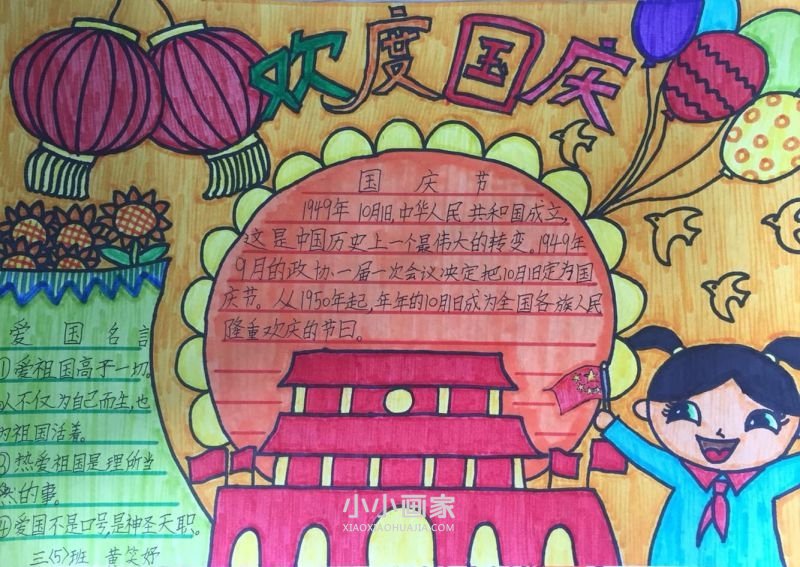 欢度国庆
国庆节
1949年10月1日,中华人民共和国成立,
这是中国历史上一个最伟大的转变。1949年
9月的政协一届一次会议决定把10月1日定为国
庆节。从1950年起,年年的10月1日成为全国各族人民
隆重欢庆的节日。
爱国名言
①爱祖国高于一切。
人不仅为自己而生,也
为祖国活着。
③热爱祖国是理所当
然的事。
④爱国不是口号,是神圣天职。
三(5)班 黄笑妤
小小画家
XIAOXIAOHUAJIA.COM